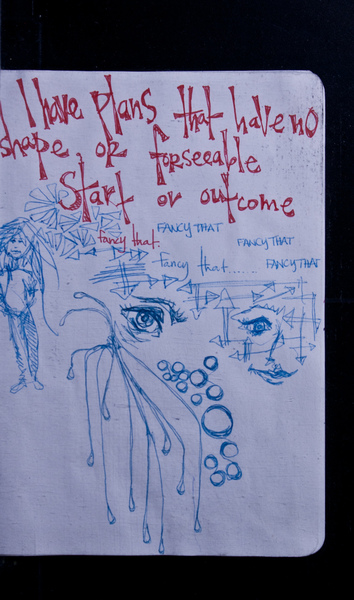 I have plans that have no
shape, or forseeable
start or outcome
fancy that. FANCY THAT
FANCY THAT
fancy that...... FANCY THAT